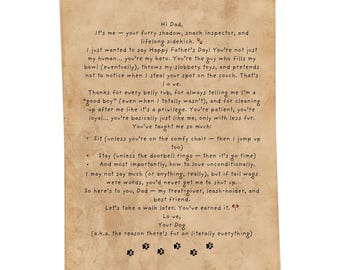 Hi Dad,
It's me — your furry shadow, snack inspector, and
lifelong sidekick. 🐾
I just wanted to say Happy Father's Day! You're not just
my human... you're my hero. You're the guy who fills my
bowl (eventually), throws my slobbery toys, and pretends
not to notice when I steal your spot on the couch. That's
love.
Thanks for every belly rub, for always telling me I'm a
"good boy" (even when I totally wasn't), and for cleaning
up after me like it's a privilege. You're patient, you're
loyal... you're basically just like me, only with less fur.
You've taught me so much:
• Sit (unless you're on the comfy chair — then I jump up
too)
• Stay (unless the doorbell rings — then it's go time)
• And most importantly, how to love unconditionally.
I may not say much (or anything, really), but if tail wags
were words, you'd never get me to shut up.
So here's to you, Dad — my treat-giver, leash-holder, and
best friend.
Let's take a walk later. You've earned it.
Love,
Your Dog
(a.k.a. the reason there's fur on literally everything)